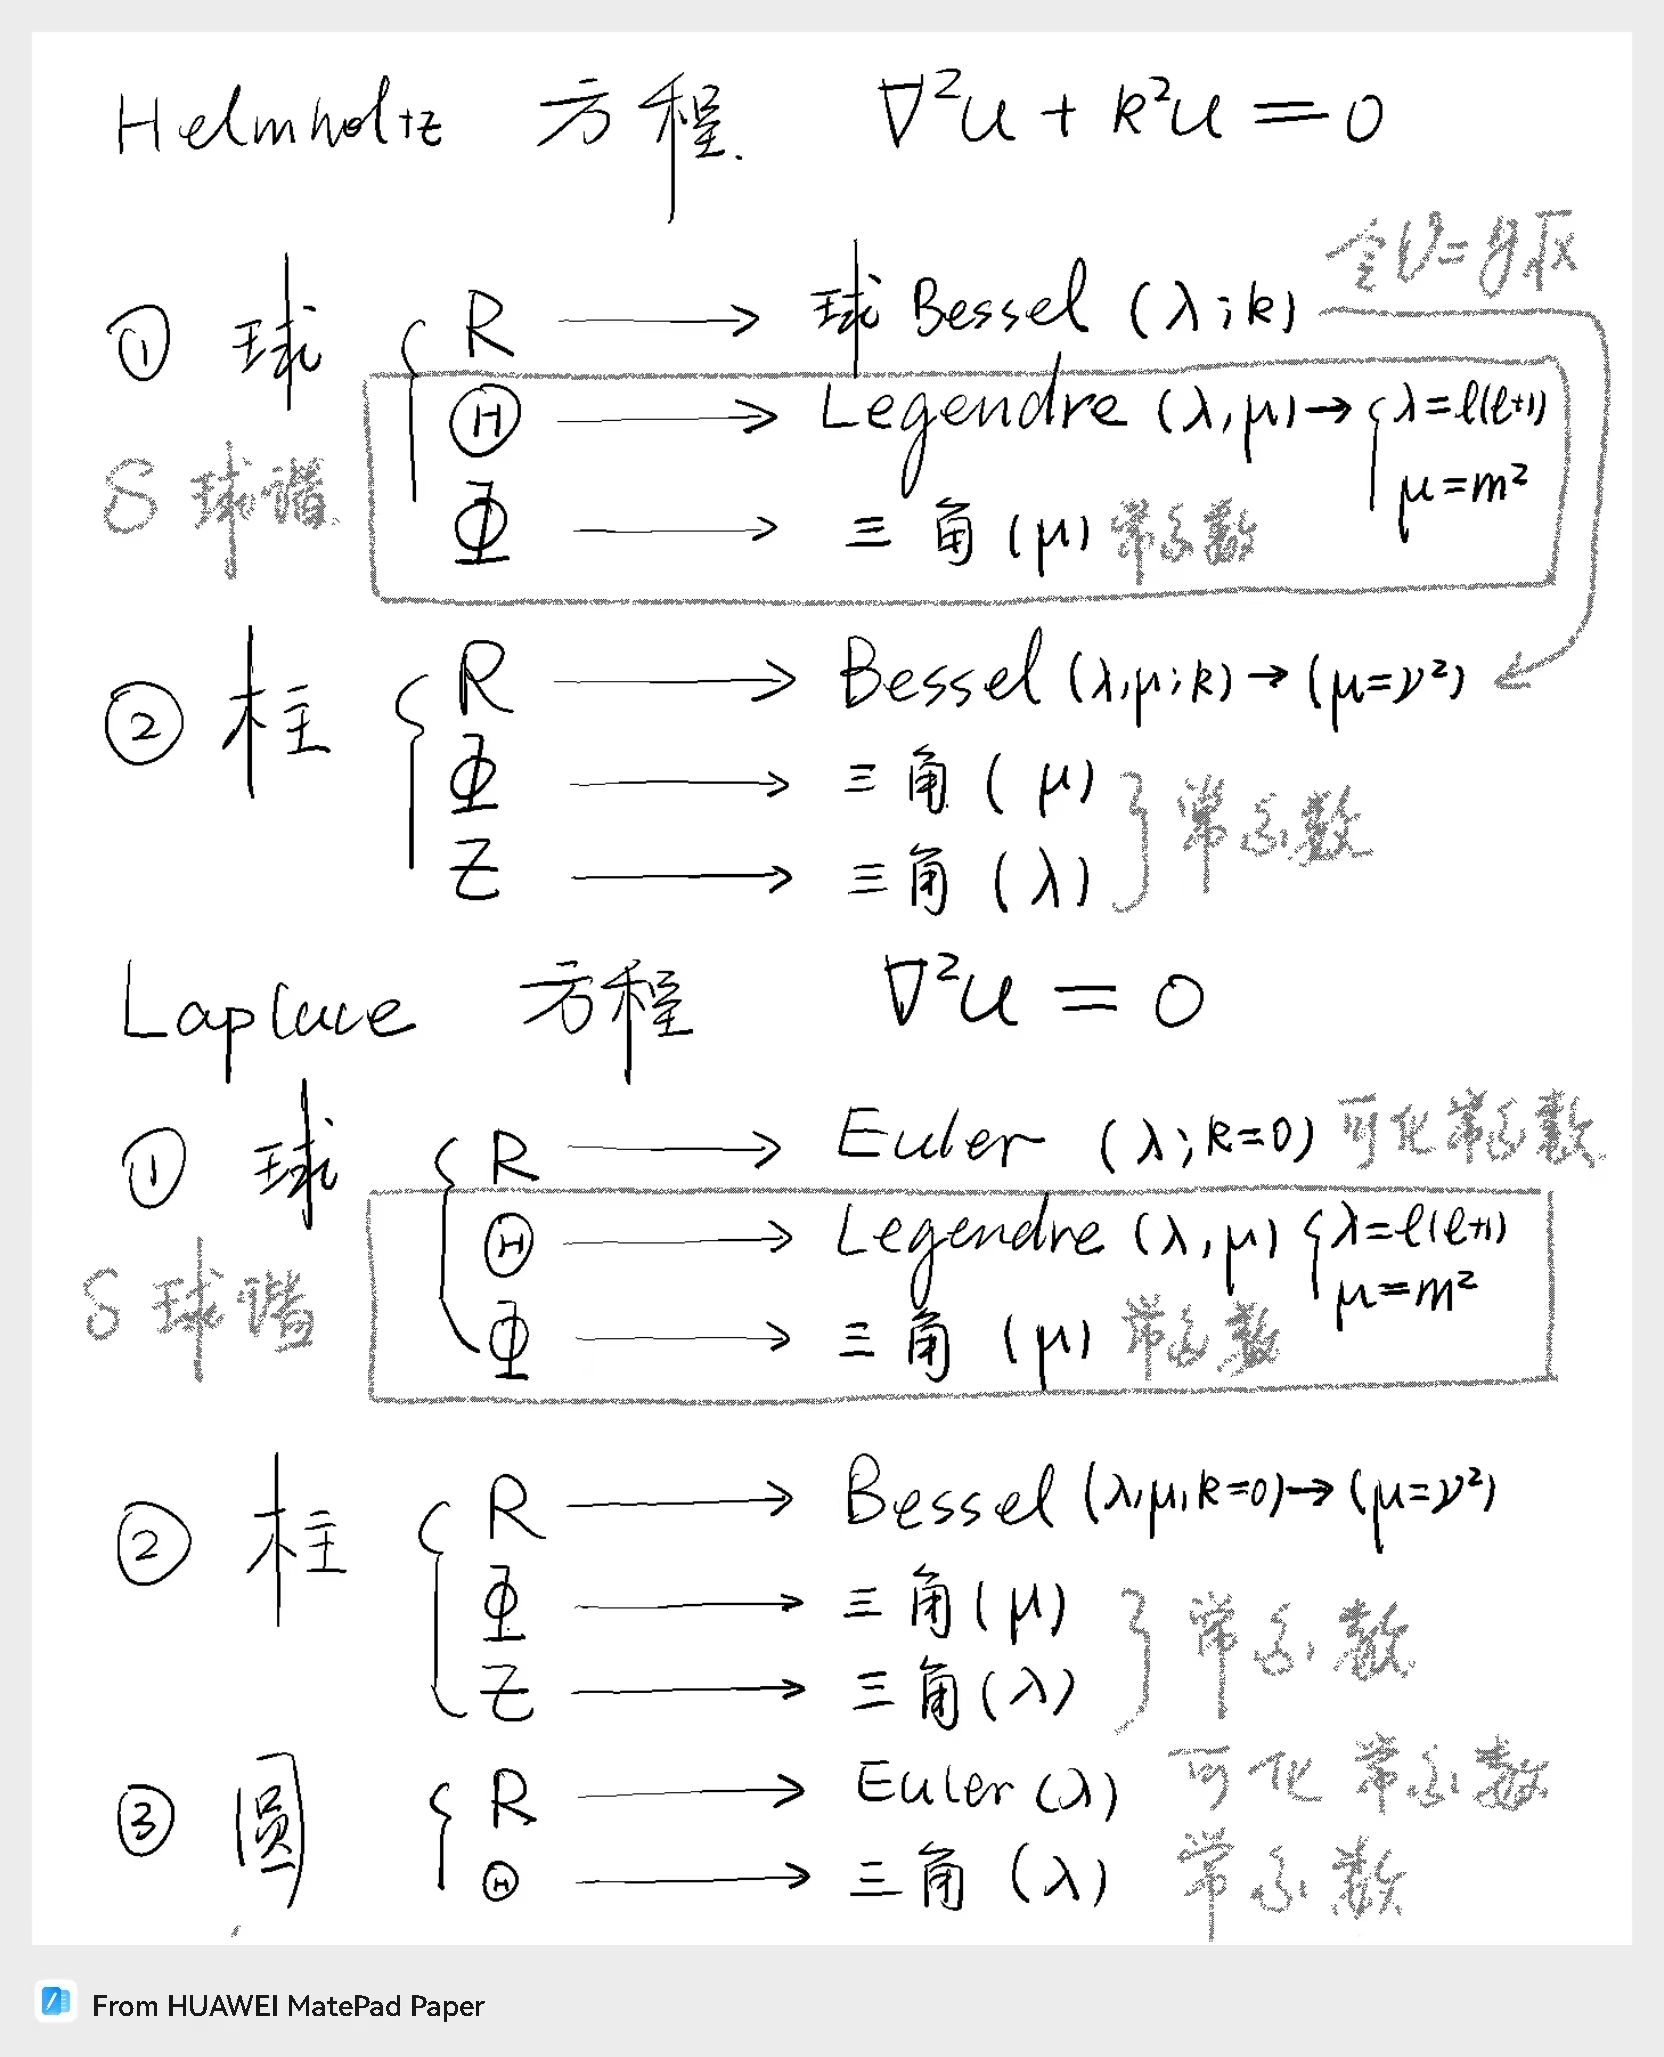 Helmholtz 方程. ∇²u + k²u = 0
令 U = y√x
① 球 { R → 球 Bessel (λ; k)
Ⓗ → Legendre (λ, μ) → { λ = ℓ(ℓ+1)
S 球谐
μ = m²
Φ → 三角 (μ) 常系数
② 柱 { R → Bessel (λ, μ; k) → (μ = ν²)
Φ → 三角 (μ)
} 常系数
Z → 三角 (λ)
Laplace 方程 ∇²u = 0
① 球 { R → Euler (λ; k=0) 可化常系数
Ⓗ → Legendre (λ, μ) { λ = ℓ(ℓ+1)
S 球谐
μ = m²
Φ → 三角 (μ) 常系数
② 柱 { R → Bessel (λ, μ, k=0) → (μ = ν²)
Φ → 三角 (μ)
} 常系数
Z → 三角 (λ)
③ 圆 { R → Euler (λ) 可化常系数
Ⓗ → 三角 (λ) 常系数
From HUAWEI MatePad Paper